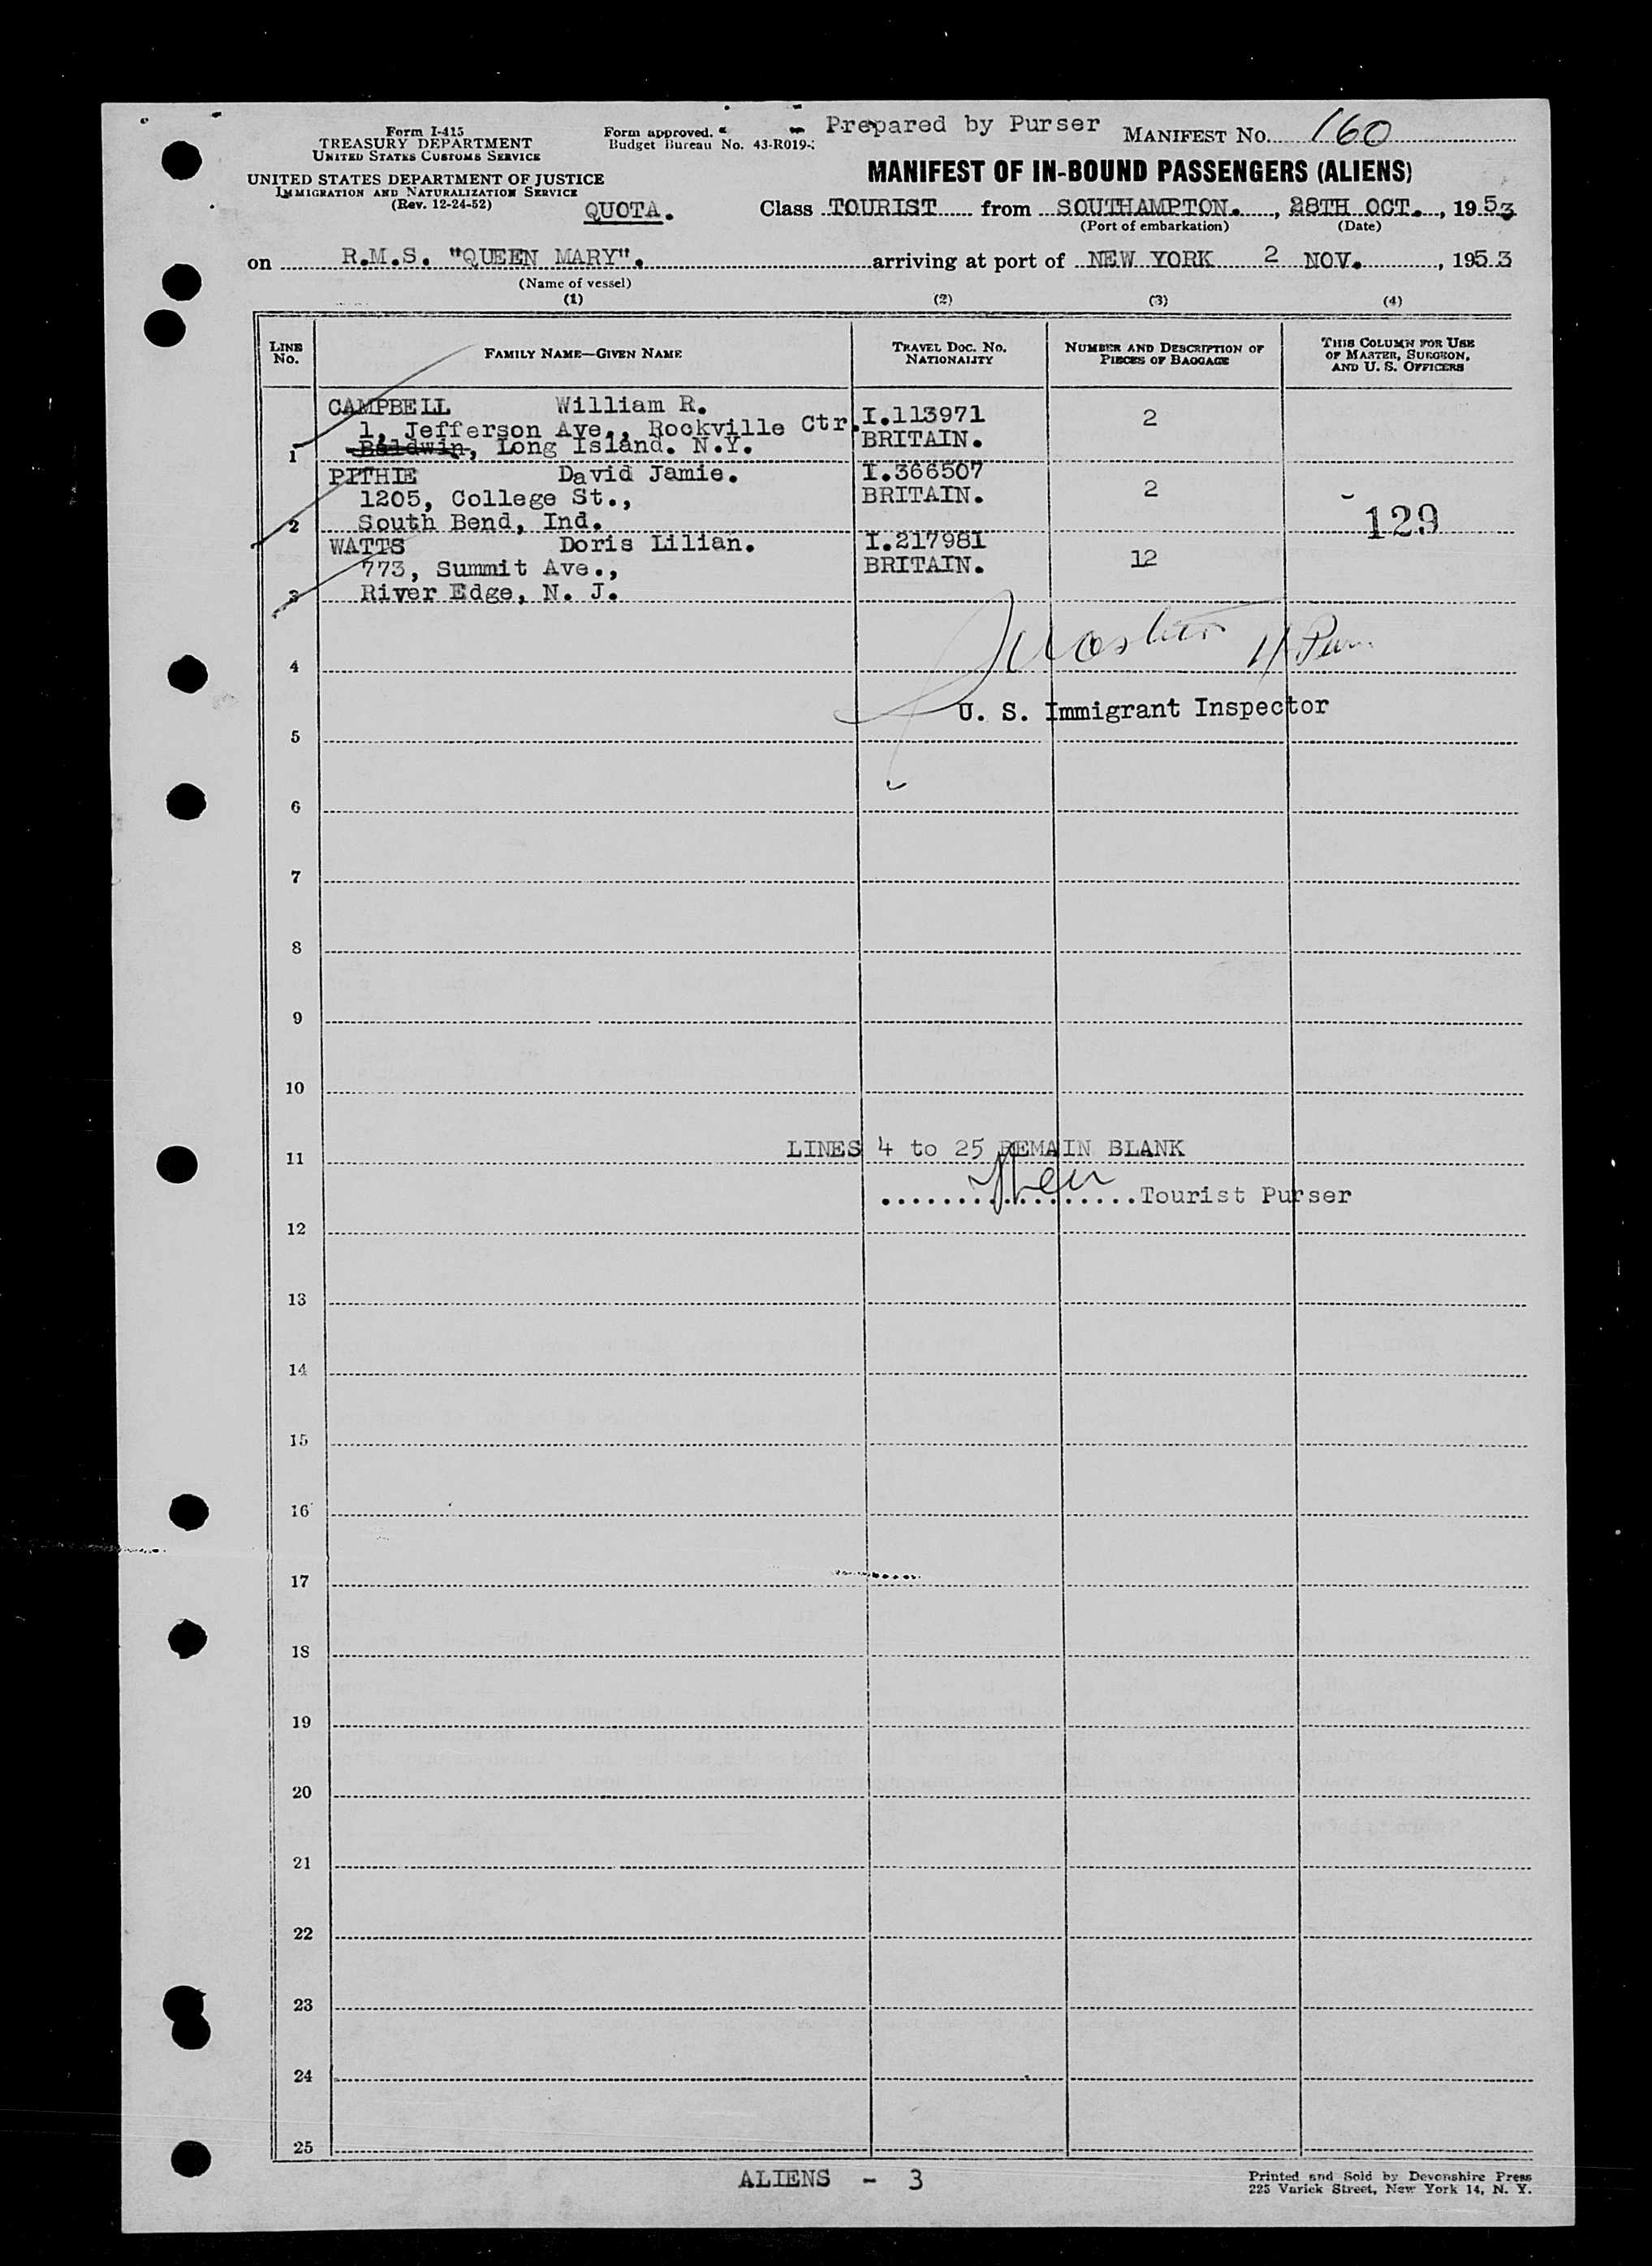 Form I-415
TREASURY DEPARTMENT
UNITED STATES CUSTOMS SERVICE
UNITED STATES DEPARTMENT OF JUSTICE
IMMIGRATION AND NATURALIZATION SERVICE
(Rev. 12-24-52)
Form approved.
Budget Bureau No. 43-R019-
Prepared by Purser
MANIFEST No. 160
MANIFEST OF IN-BOUND PASSENGERS (ALIENS)
QUOTA.
Class TOURIST from SOUTHAMPTON., 28TH OCT., 1953
(Port of embarkation) (Date)
on R.M.S. "QUEEN MARY". arriving at port of NEW YORK 2 NOV., 1953
(Name of vessel)
(1) (2) (3) (4)
LINE No. FAMILY NAME—GIVEN NAME TRAVEL DOC. NO. NATIONALITY NUMBER AND DESCRIPTION OF PIECES OF BAGGAGE THIS COLUMN FOR USE OF MASTER, SURGEON, AND U. S. OFFICERS
CAMPBELL William R. I.113971 2
1, Jefferson Ave., Rockville Ctr. BRITAIN.
1 Baldwin, Long Island. N.Y.
PITHIE David Jamie. I.366507 2
1205, College St., BRITAIN.
2 South Bend, Ind. 129
WATTS Doris Lilian. I.217981 12
773, Summit Ave., BRITAIN.
3 River Edge, N. J.
4
U. S. Immigrant Inspector
5
6
7
8
9
10
LINES 4 to 25 REMAIN BLANK
11
..................Tourist Purser
12
13
14
15
16
17
18
19
20
21
22
23
24
25
ALIENS - 3
Printed and Sold by Devonshire Press
225 Varick Street, New York 14, N. Y.